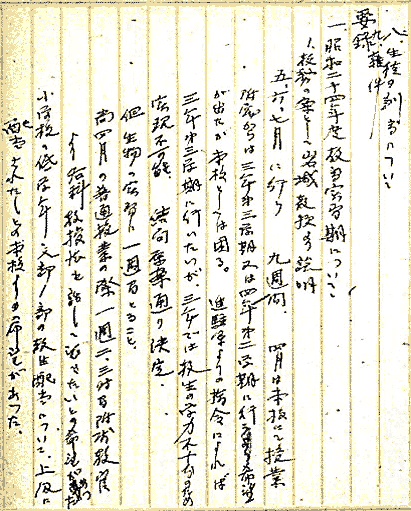 八、生徒の割当について
九、雑件
要録
一、昭和二十四年度教生実習期について
1、教務の案として岩城教授より説明
五、六、七月に行う 九週間、四月は本校にて授業
附属からは三年第三学期又は四年第二学期に行う希望
が出たが本校としては困る。進駐軍よりの指令によれば
三年第三学期に行いたいが、三年では教生の学力不十分のため
実現不可能 結局原案通り決定。
但生物の実習に一週間とること、
尚四月の普通授業の際一週二、三時間附属教官
より各科教授法を話して頂きたいとの希望があった
小学校の低学年に元部一部の教生配当について、上級に
配当されたしとの本校よりの希望があった。